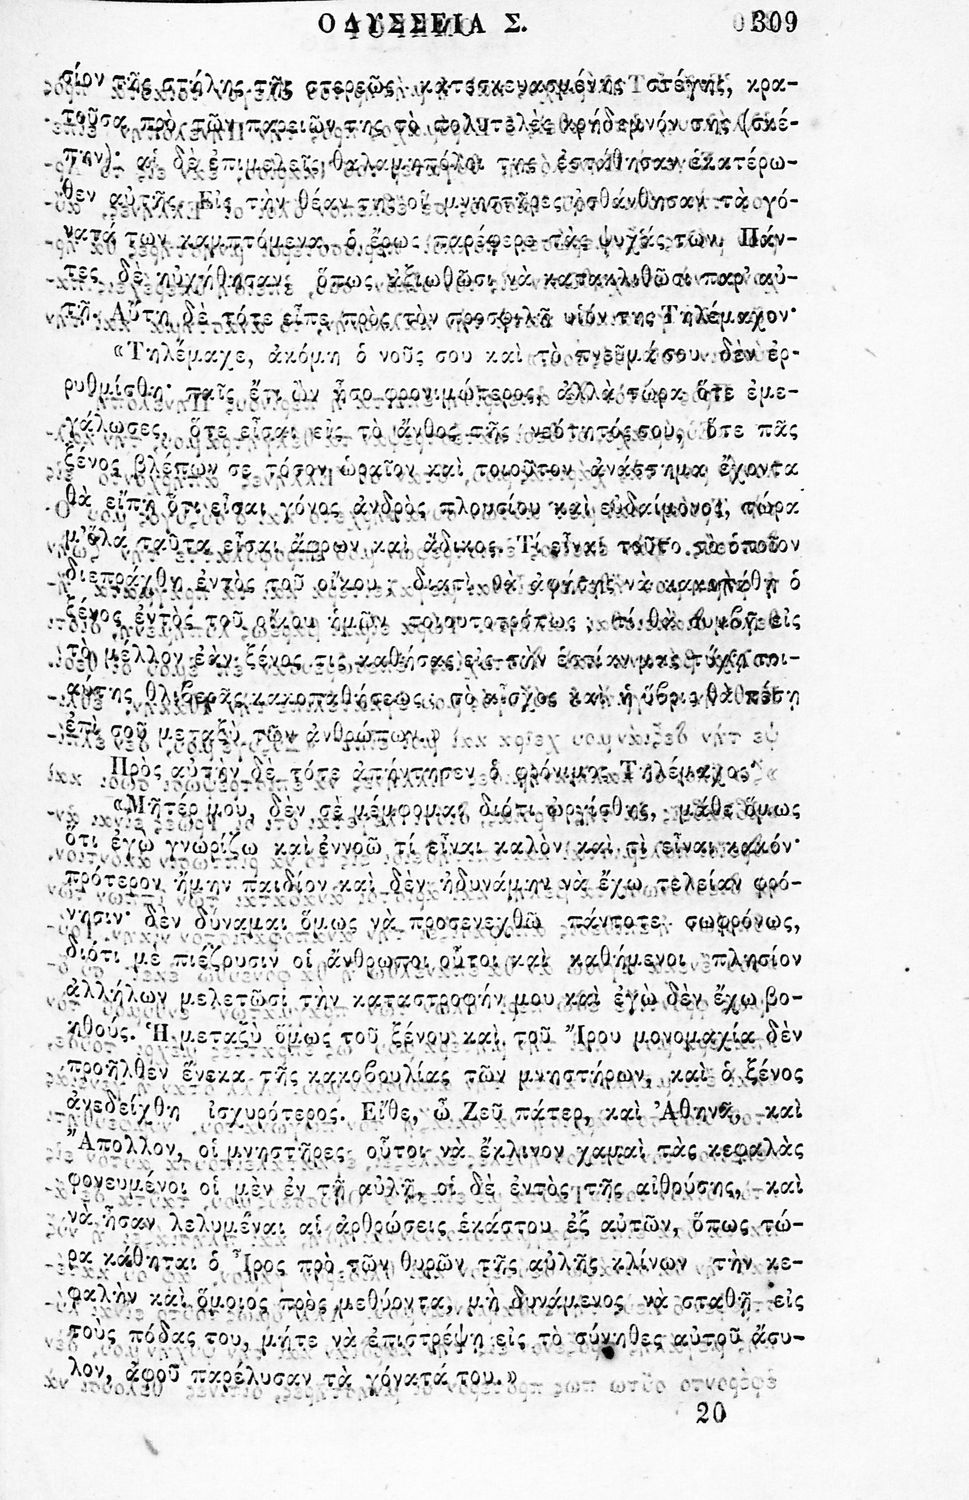 ΟΔΥΣΣΕΙΑ Σ. 309
σίον τῆς στήλης τῆς στερεῶς κατεσκευασμένης στέγης, κρα-
τοῦσα πρὸ τῶν παρειῶν της τὸ πολυτελὲς κρήδεμνόν της (σκέ-
πην)· αἱ δὲ ἐπιμελεῖς θαλαμηπόλοι της ἐστάθησαν ἑκατέρω-
θεν αὐτῆς. Εἰς τὴν θέαν της οἱ μνηστῆρες ᾐσθάνθησαν τὰ γό-
νατά των καμπτόμενα, ὁ ἔρως παρέφερε τὰς ψυχάς των. Πάν-
τες δὲ ηὐχήθησαν ὅπως ἀξιωθῶσι νὰ κατακλιθῶσι παρ' αὐ-
τῇ. Αὕτη δὲ τότε εἶπε πρὸς τὸν προσφιλῆ υἱόν της Τηλέμαχον·
«Τηλέμαχε, ἀκόμη ὁ νοῦς σου καὶ τὸ πνεῦμά σου δὲν ἐρ-
ρυθμίσθη· παῖς ἔτι ὢν ἦσο φρονιμώτερος, ἀλλὰ τώρα ὅτε ἐμε-
γάλωσες, ὅτε εἶσαι εἰς τὸ ἄνθος τῆς νεότητός σου, ὅτε πᾶς
ξένος βλέπων σε τόσον ὡραῖον καὶ τοιοῦτον ἀνάστημα ἔχοντα
θὰ εἴπῃ ὅτι εἶσαι γόνος ἀνδρὸς πλουσίου καὶ εὐδαίμονος, τώρα
μ' ὅλα ταῦτα εἶσαι ἄφρων καὶ ἄδικος. Τί εἶναι τοῦτο τὸ ὁποῖον
διεπράχθη ἐντὸς τοῦ οἴκου; διατί θὰ ἀφήσῃς νὰ κακοπάθῃ ὁ
ξένος ἐντὸς τοῦ οἴκου ἡμῶν τοιουτοτρόπως; τί θὰ συμβῇ εἰς
τὸ μέλλον ἐὰν ξένος τις καθήσας εἰς τὴν ἑστίαν μας τύχῃ τοι-
αύτης θλιβερᾶς κακοπαθήσεως; τὸ αἶσχος καὶ ἡ ὕβρις θὰ πέσῃ
ἐπὶ σοῦ μεταξὺ τῶν ἀνθρώπων.»
Πρὸς αὐτὴν δὲ τότε ἀπήντησεν ὁ φρόνιμος Τηλέμαχος·
«Μῆτέρ μου, δὲν σὲ μέμφομαι διότι ὠργίσθης, μάθε ὅμως
ὅτι ἐγὼ γνωρίζω καὶ ἐννοῶ τί εἶναι καλὸν καὶ τί εἶναι κακόν·
πρότερον ἤμην παιδίον καὶ δὲν ἠδυνάμην νὰ ἔχω τελείαν φρό-
νησιν· δὲν δύναμαι ὅμως νὰ προσενεχθῶ πάντοτε σωφρόνως,
διότι μὲ πιέζουσιν οἱ ἄνθρωποι οὗτοι καὶ καθήμενοι πλησίον
ἀλλήλων μελετῶσι τὴν καταστροφήν μου καὶ ἐγὼ δὲν ἔχω βο-
ηθούς. Ἡ μεταξὺ ὅμως τοῦ ξένου καὶ τοῦ Ἴρου μονομαχία δὲν
προῆλθεν ἕνεκα τῆς κακοβουλίας τῶν μνηστήρων, καὶ ὁ ξένος
ἀνεδείχθη ἰσχυρότερος. Εἴθε, ὦ Ζεῦ πάτερ, καὶ Ἀθηνᾶ, καὶ
Ἄπολλον, οἱ μνηστῆρες οὗτοι νὰ ἔκλινον χαμαὶ τὰς κεφαλὰς
φονευμένοι οἱ μὲν ἐν τῇ αὐλῇ, οἱ δὲ ἐντὸς τῆς αἰθρύσης, καὶ
νὰ ἦσαν λελυμέναι αἱ ἀρθρώσεις ἑκάστου ἐξ αὐτῶν, ὅπως τώ-
ρα κάθηται ὁ Ἶρος πρὸ τῶν θυρῶν τῆς αὐλῆς κλίνων τὴν κε-
φαλὴν καὶ ὅμοιος πρὸς μεθύοντα, μὴ δυνάμενος νὰ σταθῇ εἰς
τοὺς πόδας του, μήτε νὰ ἐπιστρέψῃ εἰς τὸ σύνηθες αὐτοῦ ἄσυ-
λον, ἀφοῦ παρέλυσαν τὰ γόνατά του.»
20